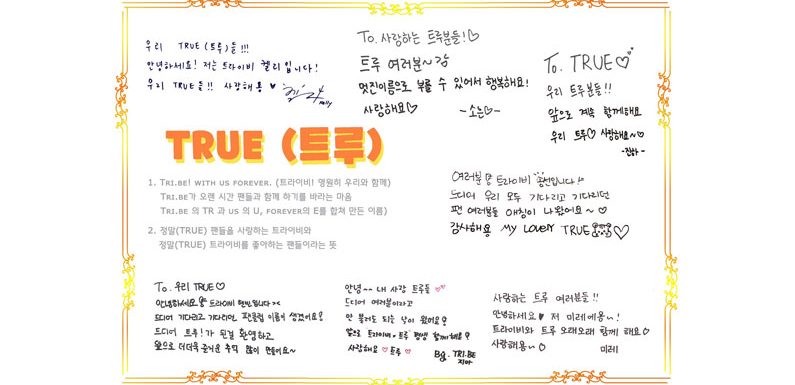 우리 TRUE(트루)들!!!
안녕하세요! 저는 트라이비 켈리입니다!
우리 TRUE들!! 사랑해용 ♥
Kelly
To. 사랑하는 트루분들!♡
트루 여러분~
멋진이름으로 부를 수 있어서 행복해요!
사랑해요♡ -소은♡-
To. TRUE♡
우리 트루분들!!
앞으로 계속 함께해요
우리 트루♡ 사랑해요~♡
-진하-
TRUE (트루)
1. TRI.BE! WITH US FOREVER. (트라이비! 영원히 우리와 함께)
TRI.BE가 오랜 시간 팬들과 함께 하기를 바라는 마음
TRI.BE 의 TR 과 US 의 U, FOREVER의 E를 합쳐 만든 이름)
2. 정말(TRUE) 팬들을 사랑하는 트라이비와
정말(TRUE) 트라이비를 좋아하는 팬들이라는 뜻
여러분 트라이비 송선입니다!
드디어 우리 모두 기다리고 기다리던
팬 여러분들 애칭이 나왔어요~♡
감사해용 MY LOVELY TRUE ♡
To. 우리 TRUE♡
안녕하세요 트라이비 현빈입니다 ><
드디어 기다리고 기다리던 팬클럽 이름이 생겼어요!
드디어 트루!가 된걸 환영하고
앞으로 더더욱 즐거운 추억 많이 만들어요~
안녕~~ 내 사랑 트루들 ♡
드디어 여러분이라고
안 불러도 되는 날이 왔어요!
앞으로 트라이비, 트루 평생 함께해요!
사랑해요 ♡트루♡
By. TRI.BE
지아
사랑하는 트루 여러분들!!
안녕하세요♥ 저 미레에용~!
트라이비와 트루 오래오래 함께 해요♡
사랑해용~♡
미레